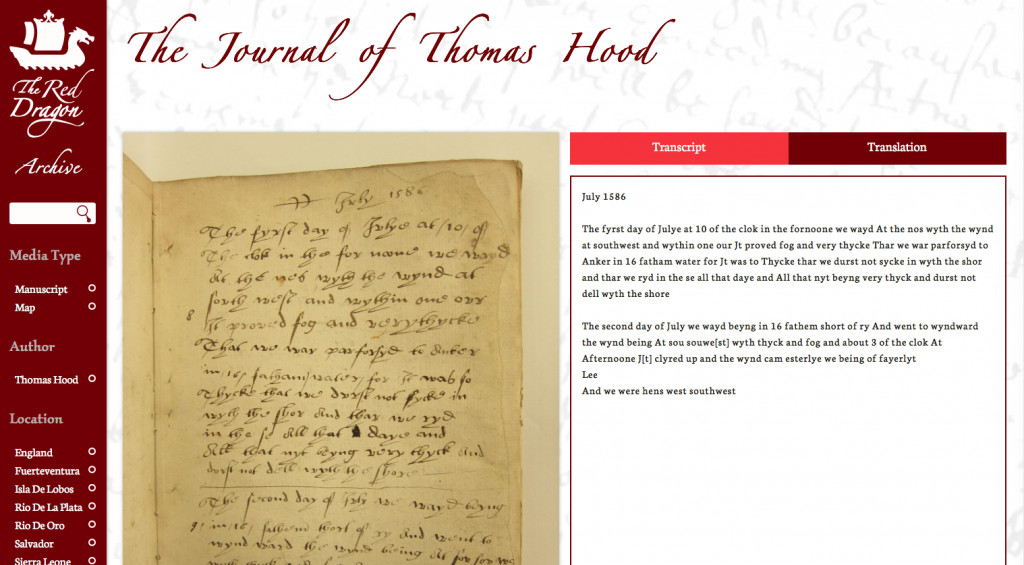 The Red
Dragon
Archive
Media Type
Manuscript
Map
Author
Thomas Hood
Location
England
Fuerteventura
Isla De Lobos
Rio De La Plata
Rio De Oro
Salvador
Sierra Leone
The Journal of Thomas Hood
July 1586
The fyrst day of Julye at /10/ of
The clok in the for none we wayd
At the nos wyth the wynd at
south west and wythin one our
8
Jt proved fog and very thycke
Thar we war parforsyd to Anker
in /16/ fatham water for Jt was so
Thycke that we durst not sycke in
wyth the shor And thar we ryd
in the se All that daye and
All that nyt beyng very thyck And
durst not dell wyth the shore
The second day of July we wayd beyng
9
in /16/ fathem short of ry And went to
wynd ward the wynd being At
Transcript
Translation
July 1586
The fyrst day of Julye at 10 of the clok in the fornoone we wayd At the nos wyth the wynd
at southwest and wythin one our Jt proved fog and very thycke Thar we war parforsyd to
Anker in 16 fatham water for Jt was to Thycke thar we durst not sycke in wyth the shor
and thar we ryd in the se all that daye and All that nyt beyng very thyck and durst not
dell wyth the shore
The second day of July we wayd beyng in 16 fathem short of ry And went to wyndward
the wynd being At sou souwe[st] wyth thyck and fog and about 3 of the clok At
Afternoone J[t] clyred up and the wynd cam esterlye we being of fayerlyt
Lee
And we were hens west southwest